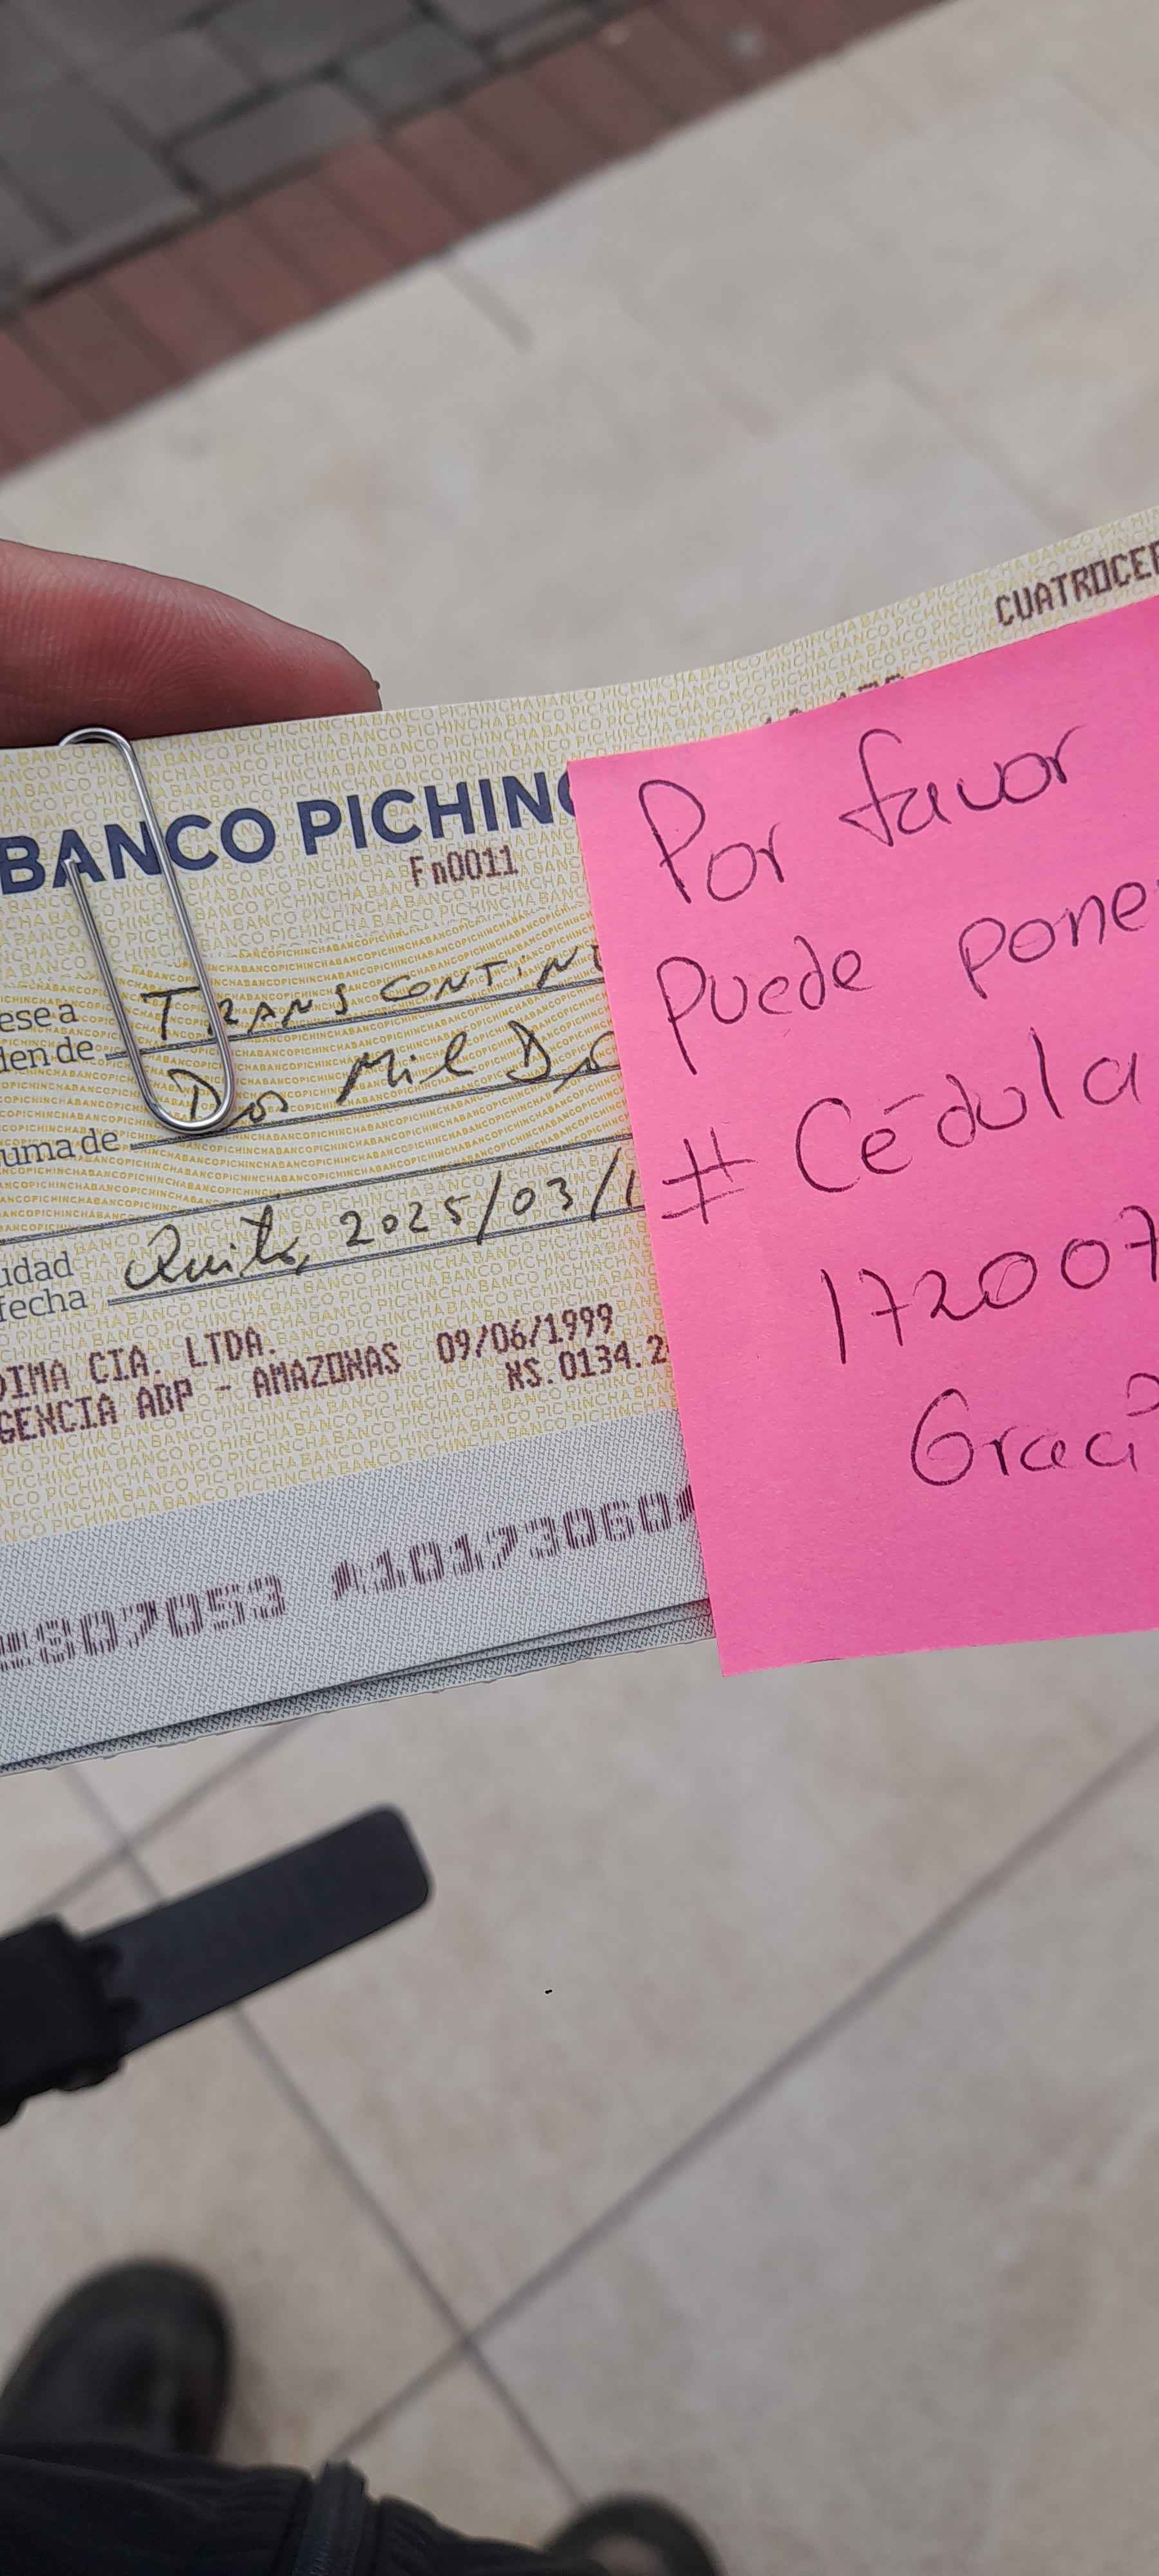 CUATROCE
BANCO PICHINC
Fn0011
ese a
den de TRANSCONTINE
Dos Mil Dó
uma de
udad
fecha Quito, 2025/03/1
DIMA CIA. LTDA. 09/06/1999
GENCIA ABP - AMAZONAS XS.0134.2
807053 A10173060
Por favor
Puede pone
# Cédula
172007
Graci